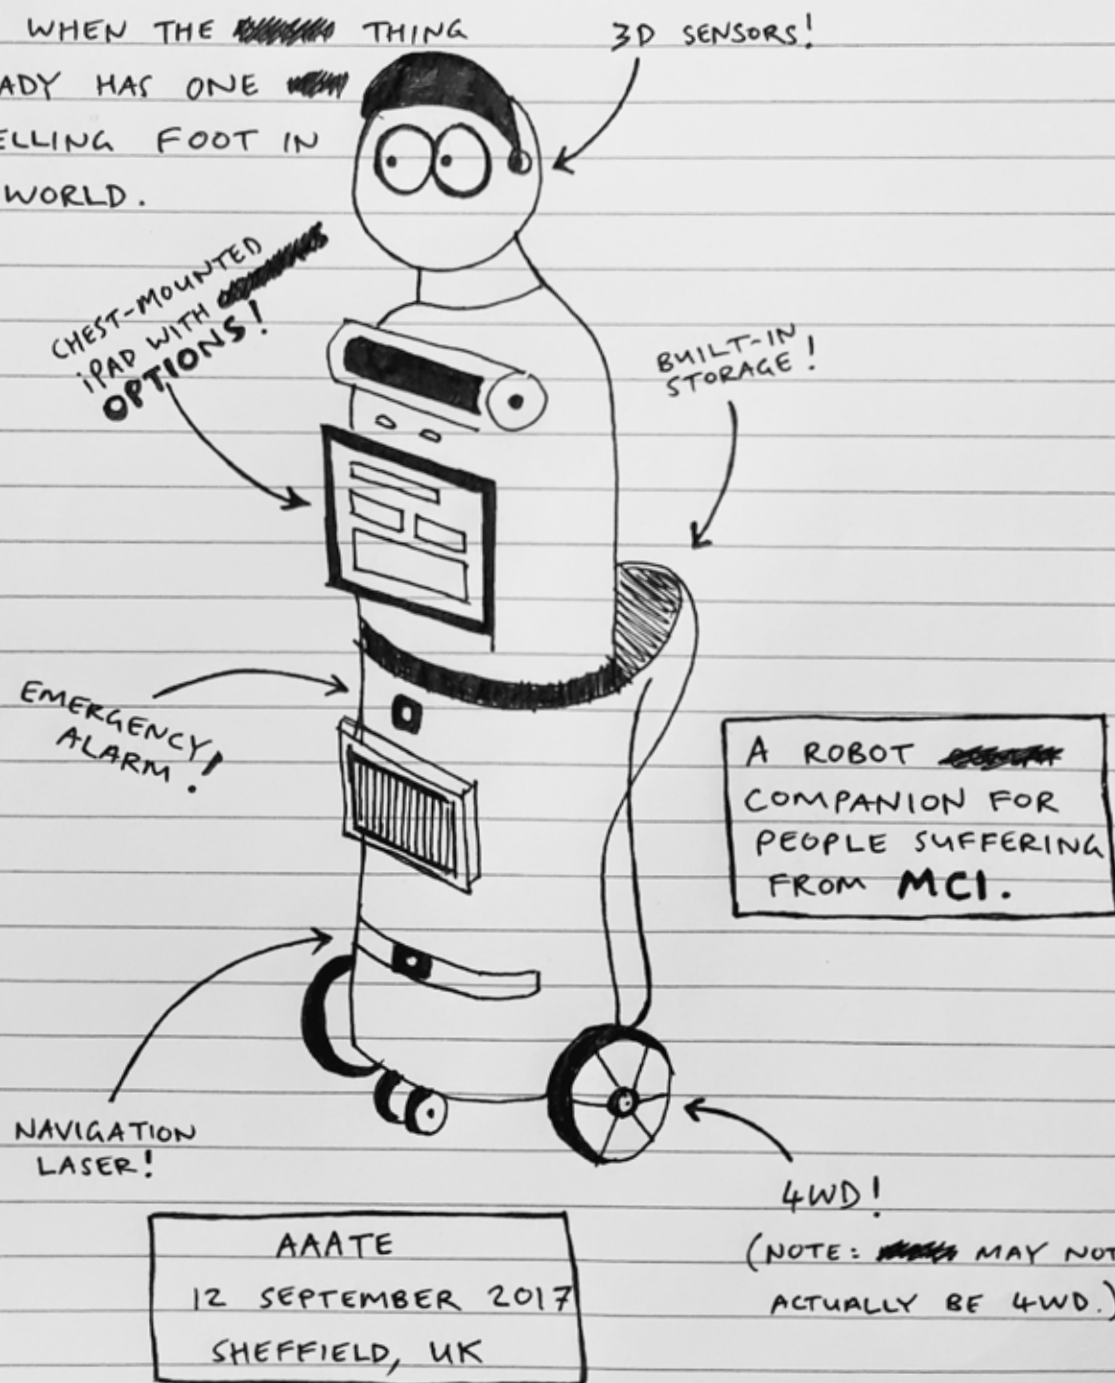 WHEN THE THING
ADY HAS ONE
ELLING FOOT IN
WORLD.
3D SENSORS!
CHEST-MOUNTED
iPAD WITH
OPTIONS!
BUILT-IN
STORAGE!
EMERGENCY
ALARM!
A ROBOT
COMPANION FOR
PEOPLE SUFFERING
FROM MCI.
NAVIGATION
LASER!
4WD!
(NOTE: MAY NOT
ACTUALLY BE 4WD.)
AAATE
12 SEPTEMBER 2017
SHEFFIELD, UK